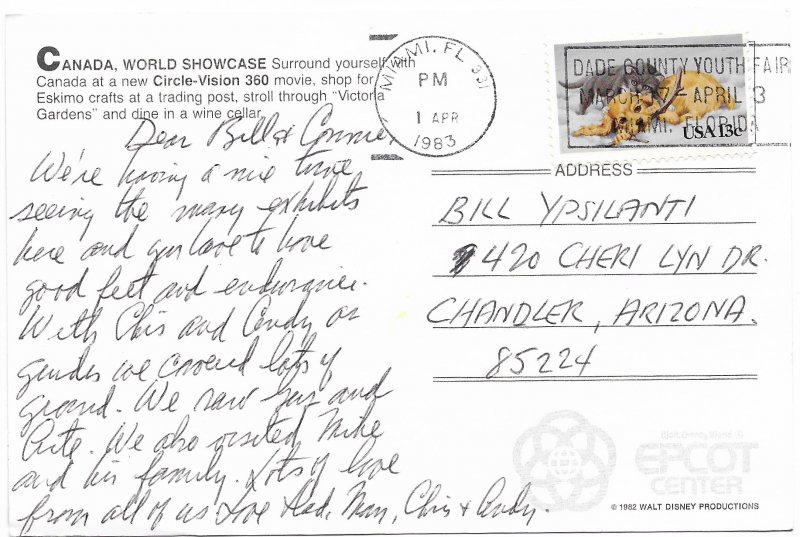 CANADA, WORLD SHOWCASE Surround yourself with
Canada at a new Circle-Vision 360 movie, shop for
Eskimo crafts at a trading post, stroll through "Victoria
Gardens" and dine in a wine cellar.
Dear Bill & Connie
We're having a nice time
seeing the many exhibits
here and you have to have
good feet and endurance.
With Chis and Candy as
guides we covered lots of
ground. We saw Gus and
Arte. We also visited Mike
and his family. Lots of love
from all of us Love Dad, Mom, Chis & Andy.
MIAMI, FL 331
PM
1 APR
1983
DADE COUNTY YOUTH FAIR
MARCH 17 - APRIL 3
MIAMI, FLORIDA
USA 13c
ADDRESS
BILL YPSILANTI
420 CHERI LYN DR.
CHANDLER, ARIZONA.
85224
Walt Disney World
EPCOT
CENTER
© 1982 WALT DISNEY PRODUCTIONS